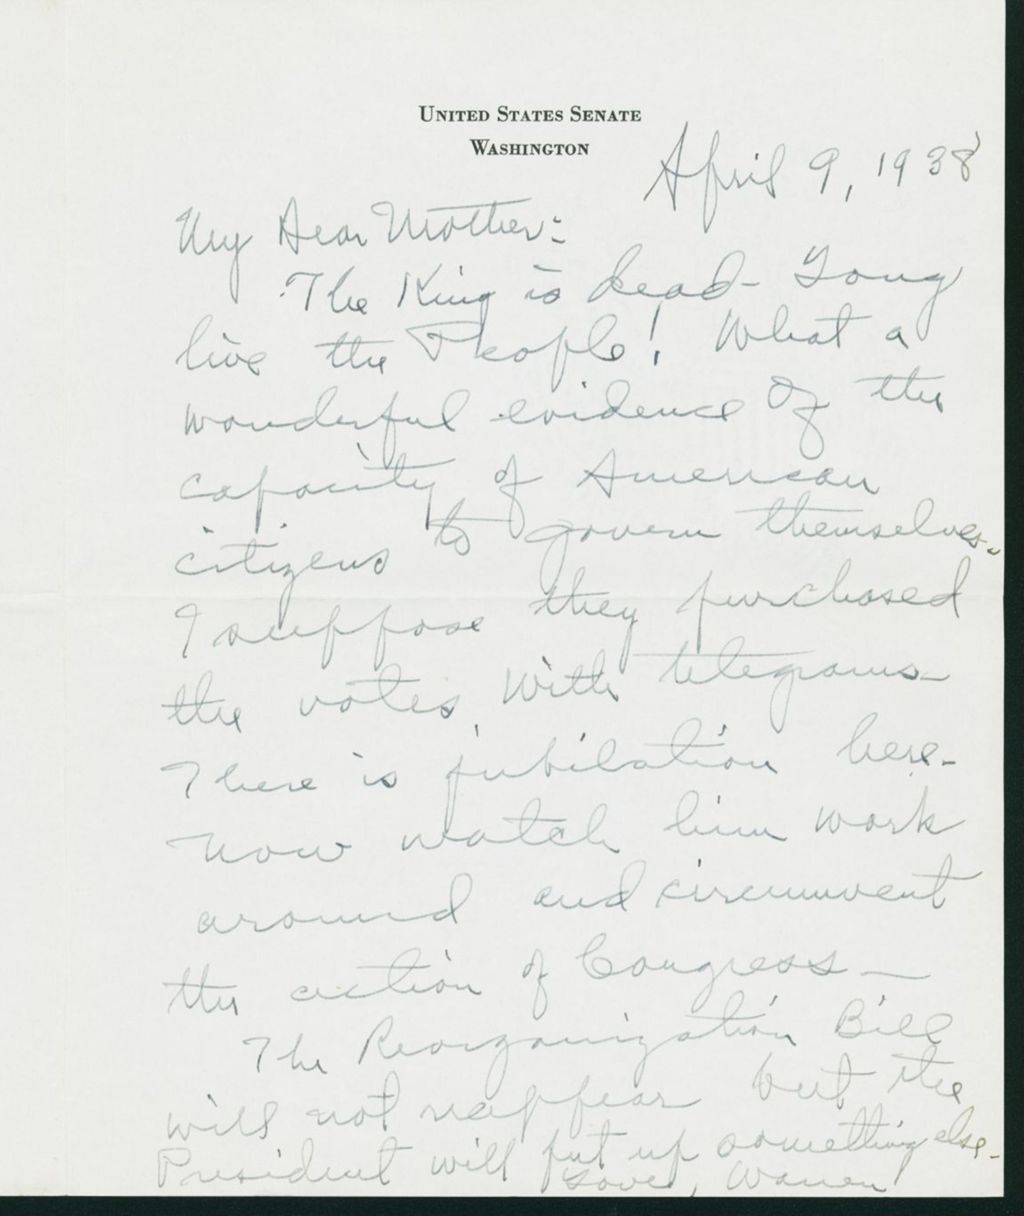 UNITED STATES SENATE
WASHINGTON
April 9, 1938
My Dear Mother:
The King is dead - Long
live the People! What a
wonderful evidence of the
capacity of American
citizens to govern themselves.
I suppose they purchased
the votes with telegrams -
There is jubilation here -
Now watch him work
around and circumvent
the action of Congress -
The Reorganization Bill
will not reappear but the
President will put up something else -
Love, Warren